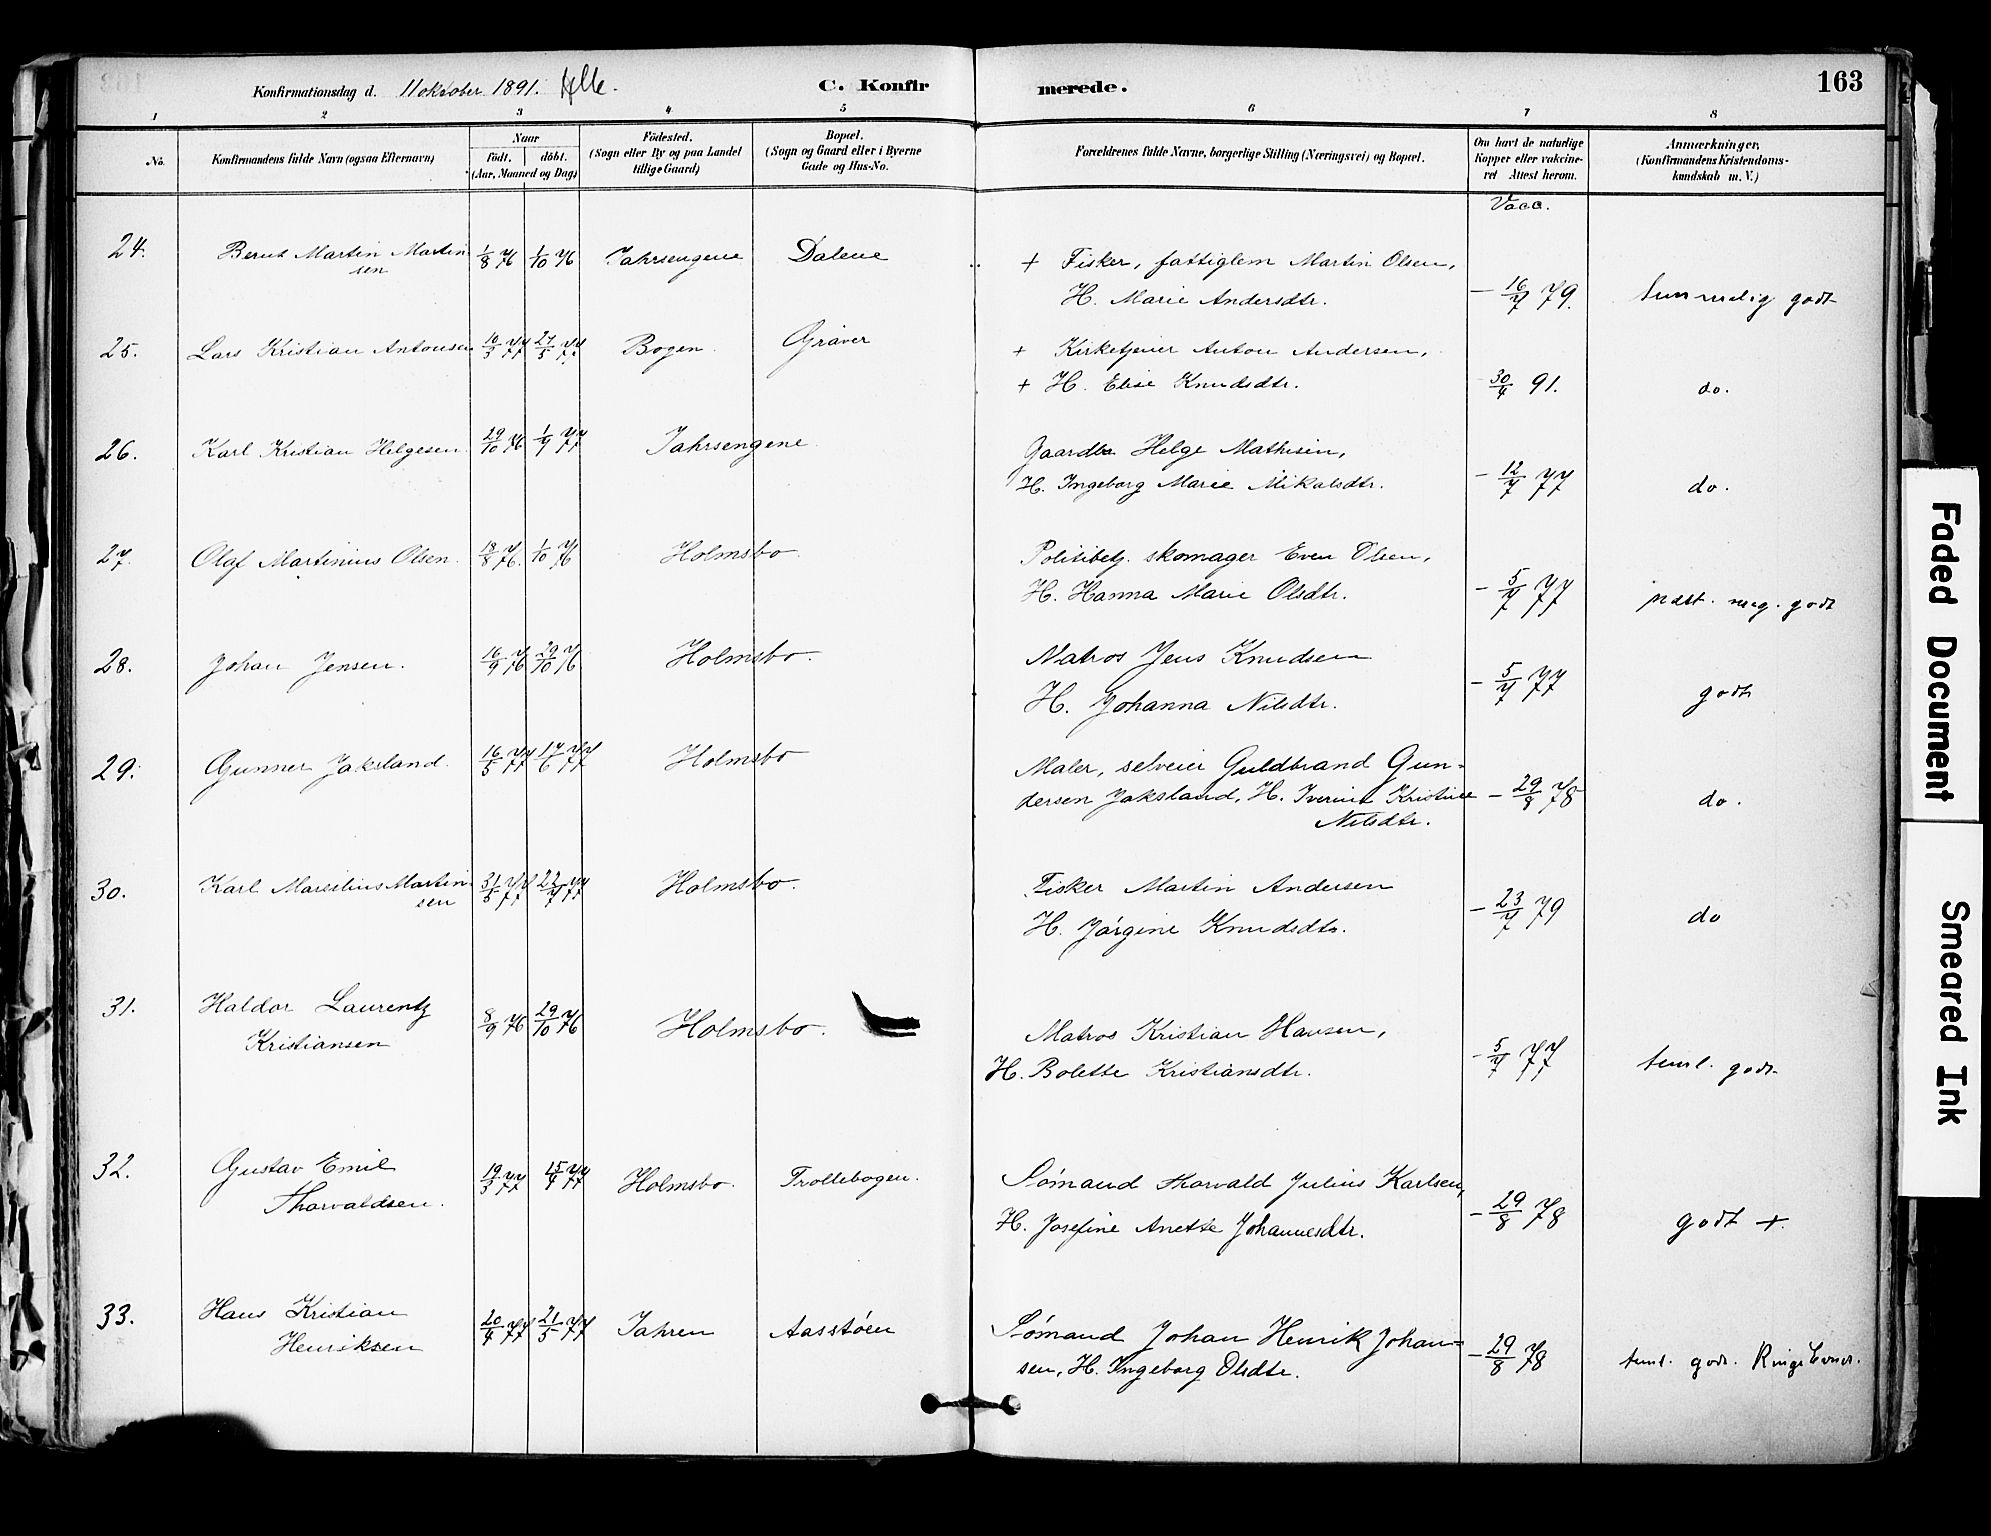 Konfirmationsdag d. 11 oktober 1891. C. Konfir merede. 163
1 2 3 4 5 6 7 8
No. Konfirmandens fulde Navn (ogsaa Efternavn) Naar født. døbt. (Aar, Maaned og Dag)
Fødested. (Sogn eller By og paa Landet tillige Gaard)
Bopæl. (Sogn og Gaard eller i Byerne Gade og Hus-No.
Forældrenes fulde Navne, borgerlige Stilling (Næringsvei) og Bopæl.
Om havt de naturlige Kopper eller vakcineret Attest herom.
Anmærkninger. (Konfirmandens Kristendomskundskab m. V.)
Vacc.
24. Bernt Martin Martin 1/8 76 1/10 76 Jahrsengene Dalene + Fisker, fattiglem Martin Olsen,
sen H. Marie Andersdtr. - 16/7 79. temmelig godt
25. Lars Kristian Antonsen 10/3 77 27/5 77 Bogen Gråver + Kirketjener Anton Andersen,
+ H. Elise Knudsdtr. 30/4 91. do.
26. Karl Kristian Helgesen 29/10 76 1/9 77 Jahrsengene Gaardbr Helge Mathisen,
H. Ingeborg Marie Mikalsdtr. - 12/7 77 do.
27. Olaf Martinius Olsen. 18/8 76. 1/10 76 Holmsbo. Politibetj. skomager Even Olsen,
H. Hanna Marie Olsdtr. - 5/7 77 næst. meg. godt
28. Johan Jensen. 16/9 76 29/10 76 Holmsbo. Matros Jens Knudsen
H. Johanna Nilsdtr. - 5/7 77 godt
29. Gunner Jaksland. 16/5 77 17/6 77 Holmsbo Maler, selveier Guldbrand Gun-
dersen Jaksland, H. Iverine Kristine - 29/8 78 do.
Nilsdtr.
30. Karl Marselius Martin 31/5 77 22/7 77 Holmsbo. Fisker Martin Andersen
sen H. Jørgine Knudsdtr. - 23/7 79 do
31. Haldor Laurentz 8/9 76 29/10 76 Holmsbo. Matros Kristian Hansen,
Kristiansen H. Bolette Kristiansdtr. - 5/7 77 teml. godt
32. Gustav Emil 19/3 77 15/4 77 Holmsbo. Trollebogen. Sømand Thorvald Julius Karlsen,
Thorvaldsen. H. Josefine Anette Johannesdtr. - 29/8 78 godt +.
33. Hans Kristian 20/4 77 21/5 77 Jahren Aasstøen Sømand Johan Henrik Johan-
Henriksen sen, H. Ingeborg Olsdtr. - 29/8 78 teml. godt. Ringe Evner.
Faded Document
Smeared Ink